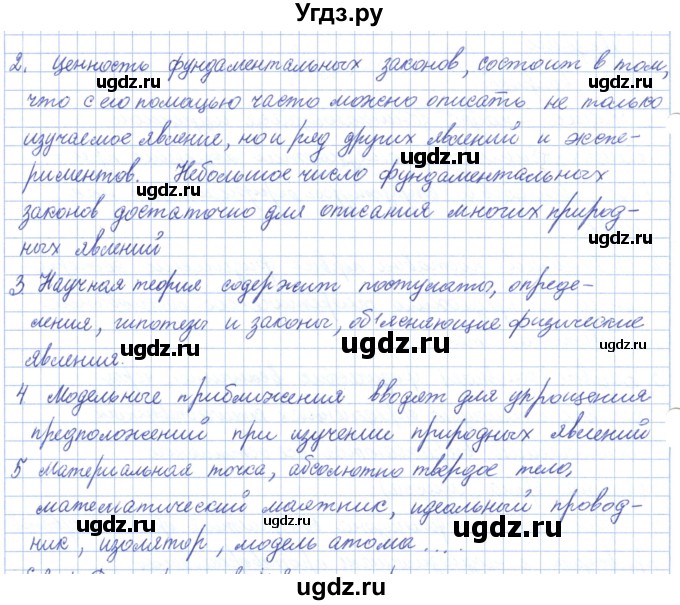 Угдз.ру
2. Ценность фундаментальных законов, состоит в том,
ugdz.ru ugdz.ru
что с его помощью часто можно описать не только
изучаемое явление, но и ряд других явлений и экспе-
ugdz.ru
риментов. Небольшое число фундаментальных
ugdz.ru
законов достаточно для описания многих природ-
ugdz.ru
ных явлений
3 Научная теория содержит постулаты, опреде-
ugdz.ru
ления, гипотезы и законы, объясняющие физические
ugdz.ru ugdz.ru ugdz.ru
явления.
4 Модельные приближения вводят для упрощения
ugdz.ru
предположений при изучении природных явлений
ugdz.ru
5 Материальная точка, абсолютно твердое тело,
математический маятник, идеальный провод-
ugdz.ru ugdz.ru ugdz.ru
ник, изолятор, модель атома ...
ugdz.ru